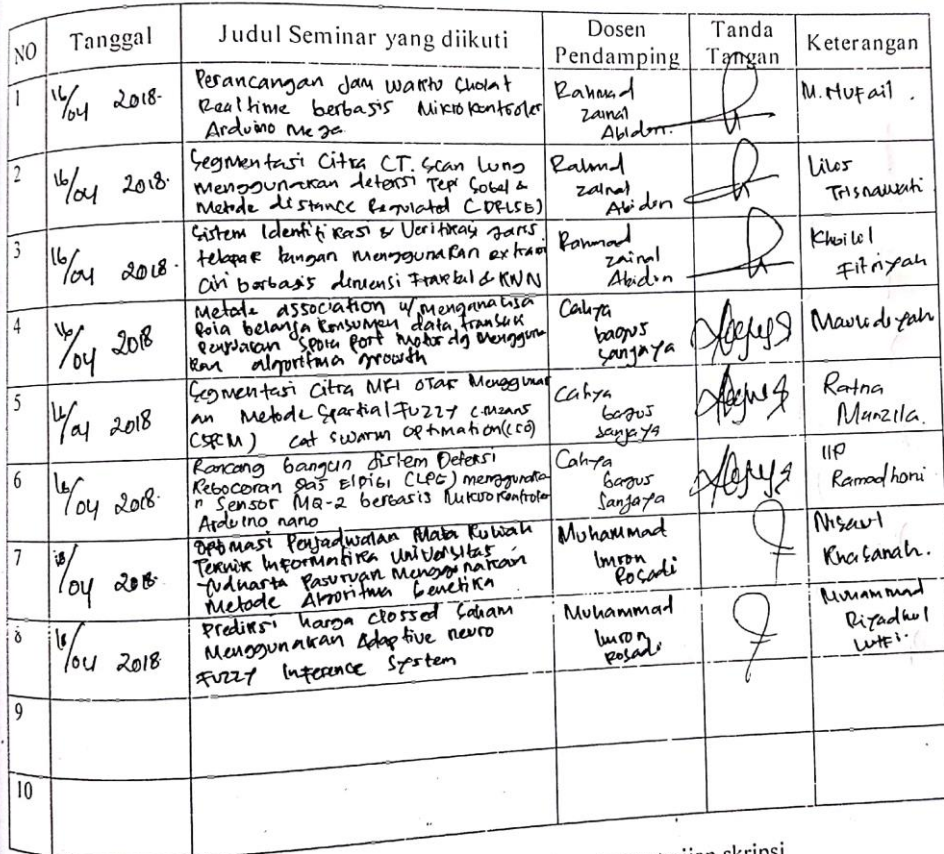 NO Tanggal Judul Seminar yang diikuti Dosen Pendamping Tanda Tangan Keterangan
1 16/04 2018. Perancangan Jam Waktu Sholat
Realtime berbasis Mikrokontroler
Arduino Mega
Rahmad
Zainal
Abidin.
M. Mufail.
2 16/04 2018. Segmentasi Citra CT. Scan Lung
menggunakan deteksi Tepi Sobel &
Metode distance Regulated (DRLSE)
Rahmad
Zainal
Abidin
Lilos
Trisnawati
3 16/04 2018. Sistem Identifikasi & Verifikasi garis
telapak tangan menggunakan extrasi
Ciri berbasis dimensi Fraktal & KNN
Rahmad
Zainal
Abidin
Khoilol
Fitriyah
4 16/04 2018 Metode association u/ menganalisa
Pola belanja Konsumen data transaksi
Penjualan Spare Part Motor dg menggunakan
algoritma growth
Cahya
bagus
Sanjaya
Mavludiyah
5 16/04 2018 Segmentasi Citra MRI OTAK Menggunak
an Metode Spartial Fuzzy C-Means
(SFCM) Cat Swarm Optimation (CSO)
Cahya
bagus
Sanjaya
Ratna
Manzila.
6 16/04 2018. Rancang bangun Sistem Deteksi
Kebocoran gas Elpiji (LPG) menggunaka
n Sensor MQ-2 berbasis Mikrokontroler
Arduino nano
Cahya
bagus
Sanjaya
IIP
Ramadhoni
7 18/04 2018. Optimasi Penjadwalan Mata Kuliah
Teknik Informatika Universitas
Yudharta Pasuruan Menggunakan
Metode Algoritma Genetika
Muhammad
Imron
Rosadi
Nisawl
Khasanah.
8 18/04 2018. Prediksi harga clossed Saham
Menggunakan Adaptive neuro
Fuzzy Inference System
Muhammad
Imron
Rosadi
Muhammad
Riyadhul
Lutfi.
9
10
skripsi